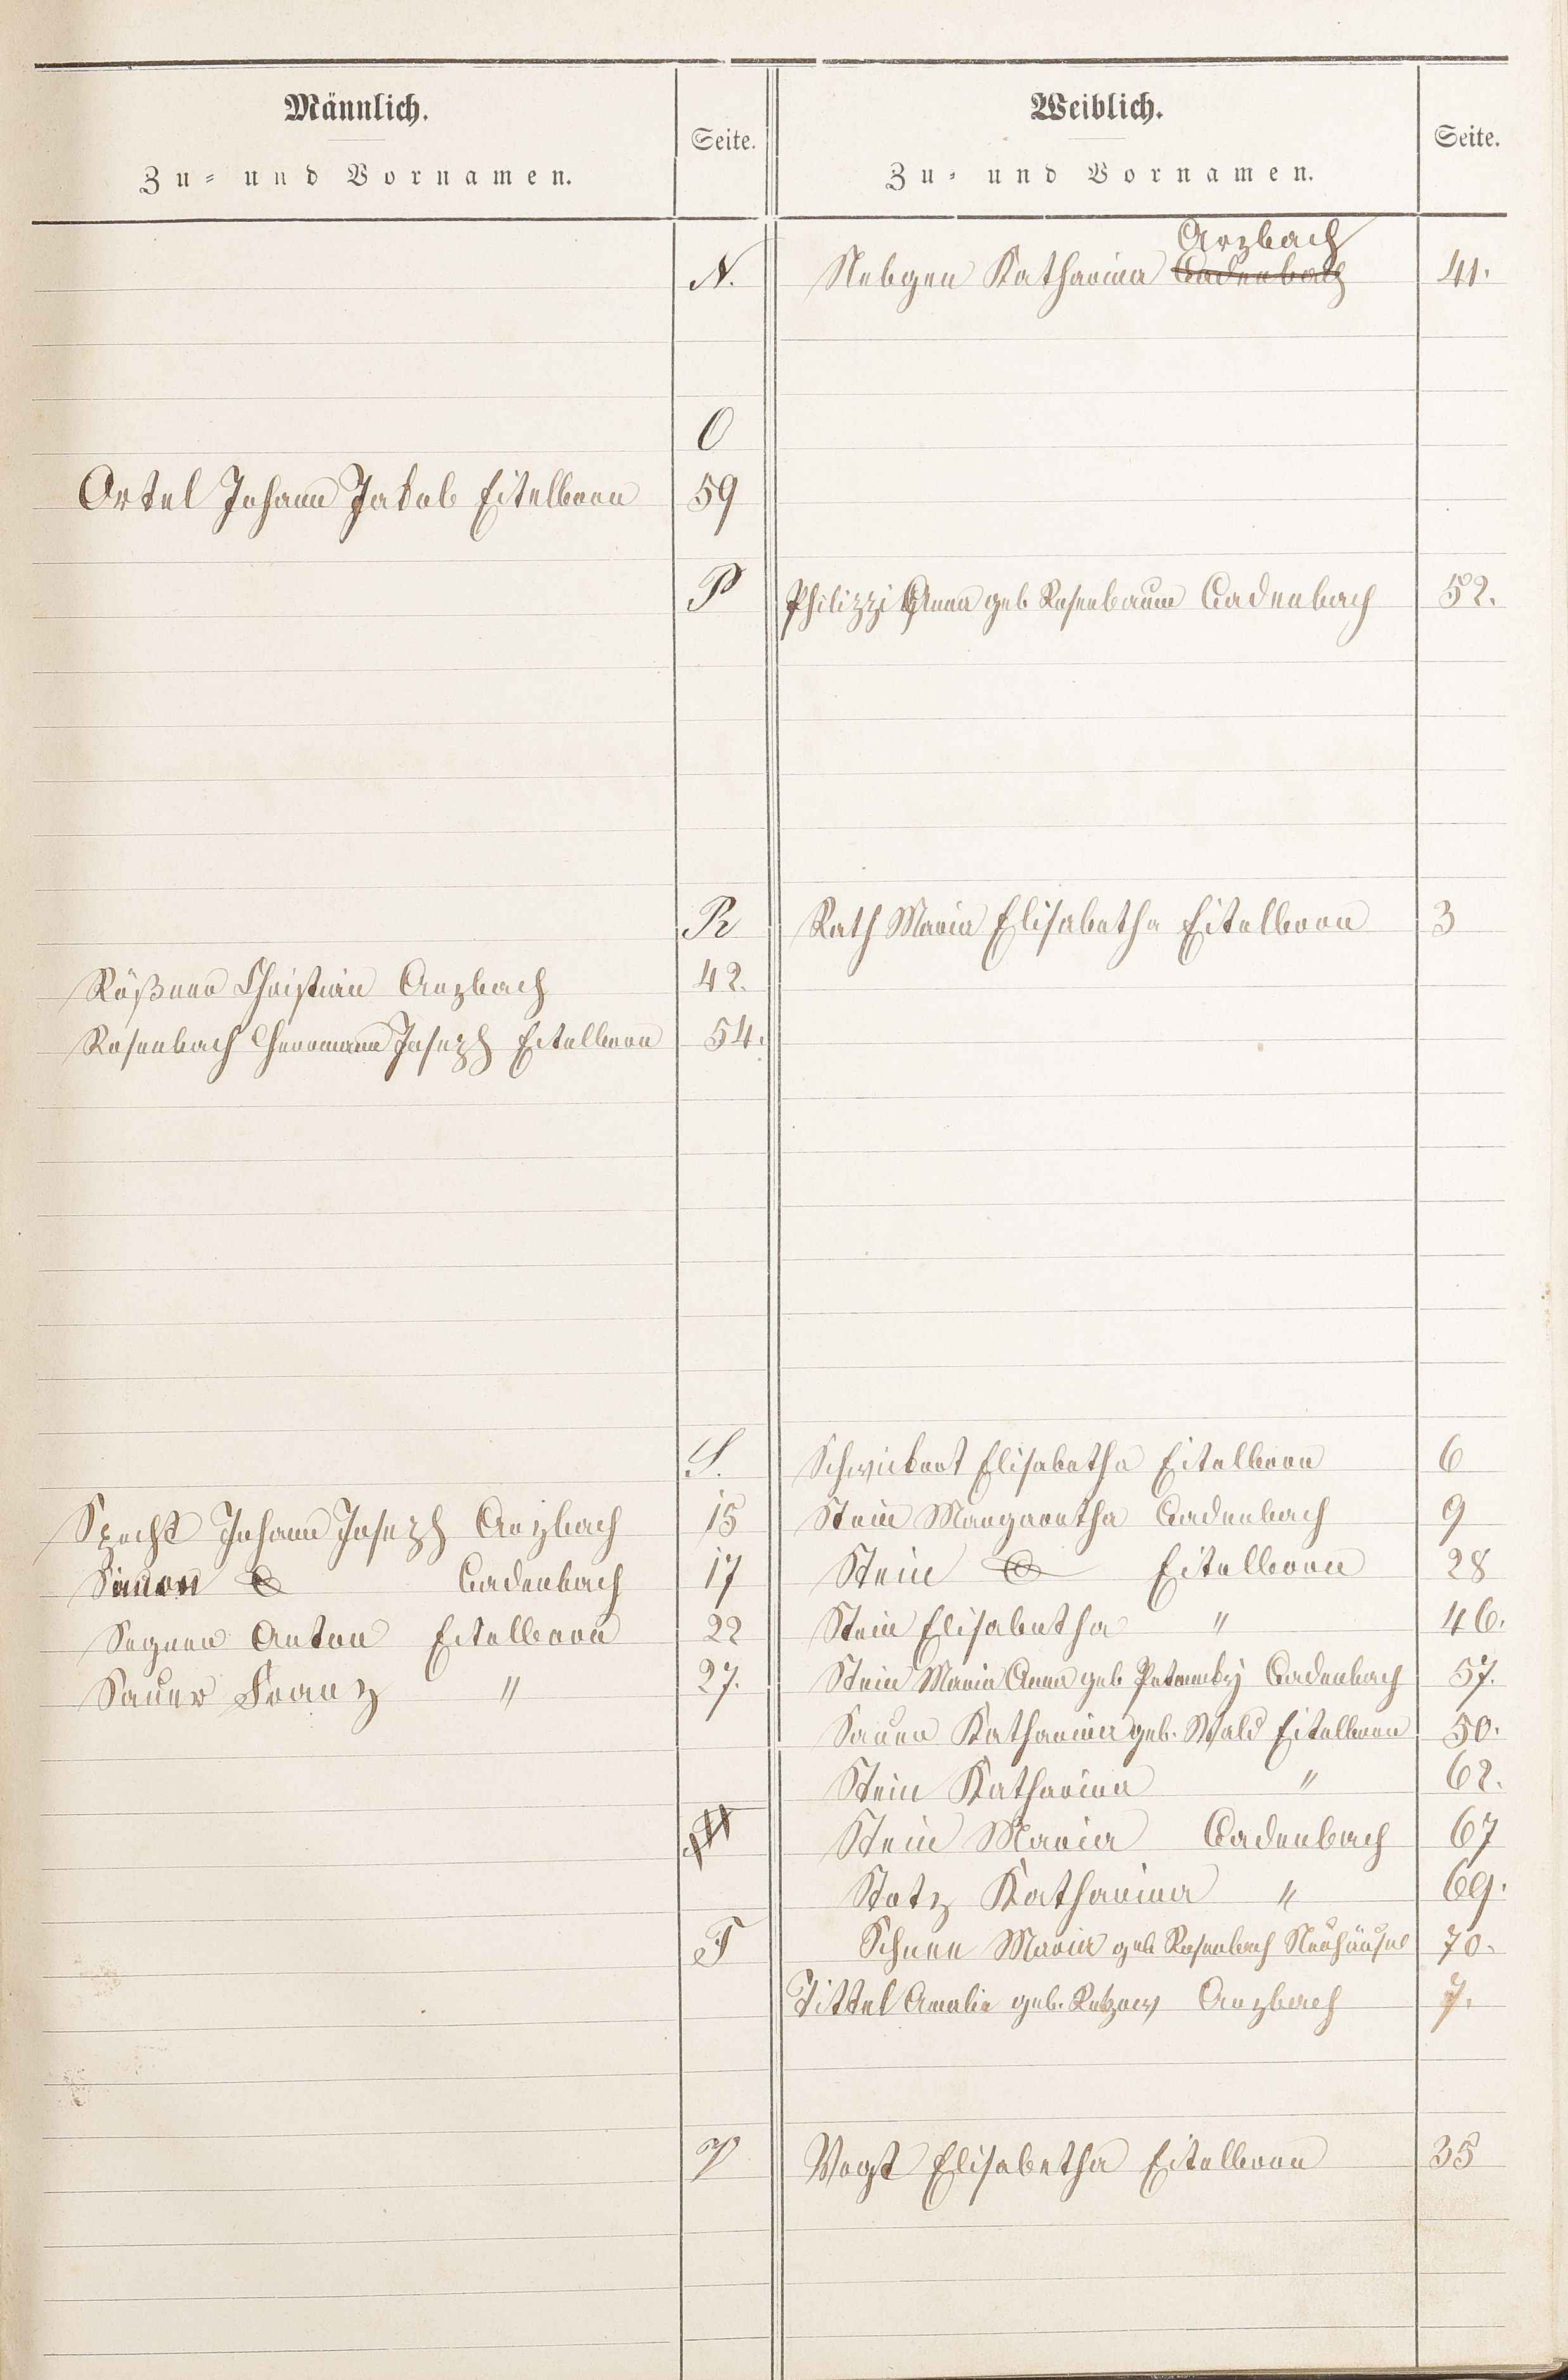 Männlich. Seite. Weiblich. Seite.
Zu- und Vornamen. Zu- und Vornamen.
Arzbach
N. Nebgen Katharina Cadenbach 41.
O
Ortel Johann Jakob Eitelborn 59
P Philippi Anna geb Rosenbaum Cadenbach 52.
R Rath Maria Elisabetha Eitelborn 3
Rößner Christian Arzbach 42.
Rosenbach Herrmann Joseph Eitelborn 54.
S. Schwickert Elisabetha Eitelborn 6
Specht Johann Joseph Arzbach 15 Stein Margaretha Cadenbach 9
Simon Cadenbach 17 Stein Eitelborn 28
Anton Eitelborn 22 Stein Elisabetha " 46.
Sauer Franz " 27. Stein Maria Anna geb Cadenbach 57.
Sauer Katharina geb. Wald Eitelborn 50.
Stein Katharina " 62.
Stein Maria Cadenbach 67
Stotz Katharina " 69.
T Schnee Maria geb Rosenbach Neuhäusel 70.
Tittel Amalie geb. Arzbach 7.
V Vogt Elisabetha Eitelborn 35